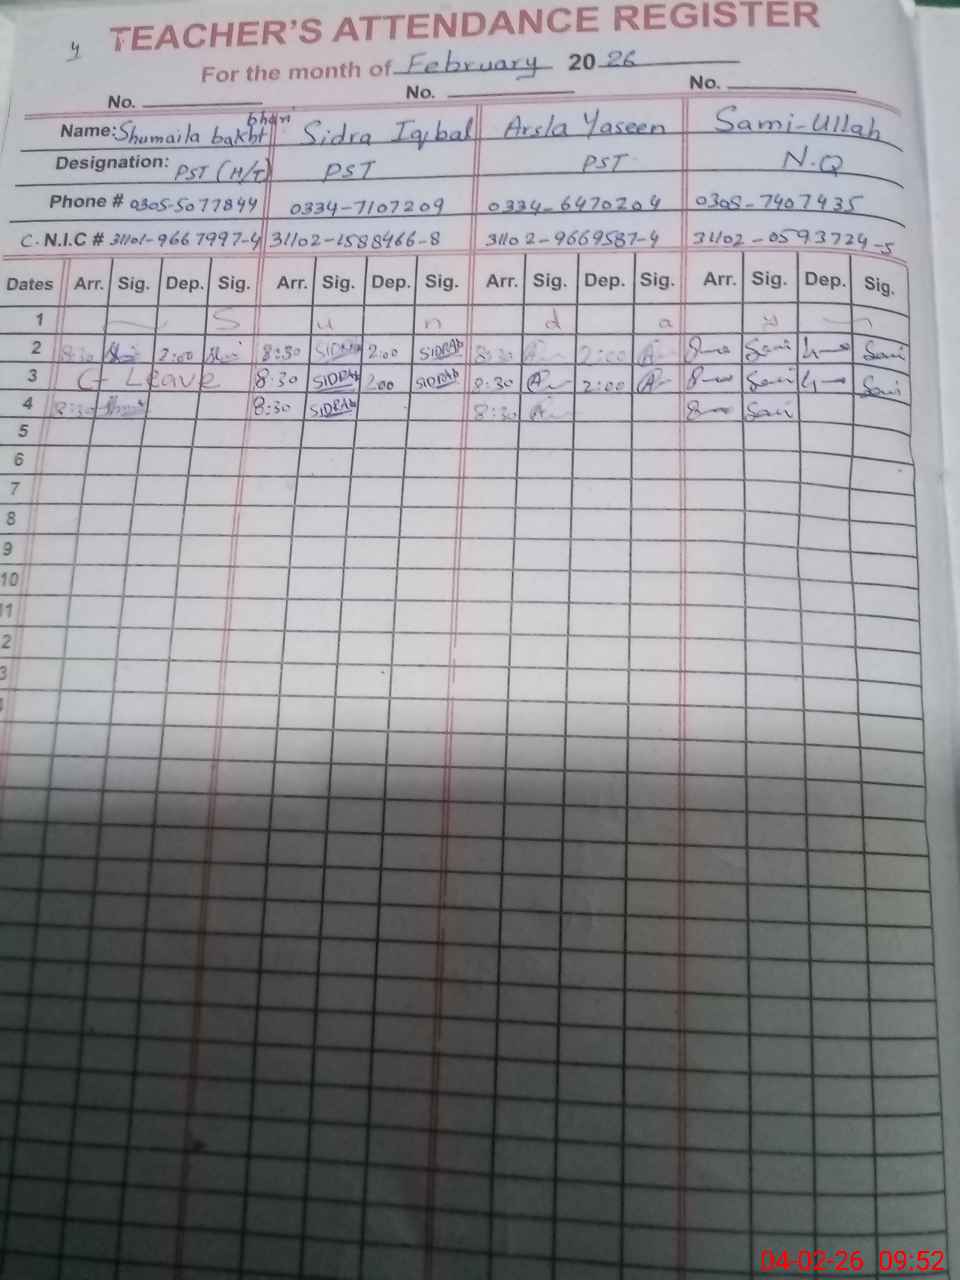 4
TEACHER'S ATTENDANCE REGISTER
For the month of February 20 26
No. No. No.
Name: Shumaila bakht bhari Sidra Iqbal Arsla Yaseen Sami-Ullah
Designation: PST (H/T) PST PST N.Q
Phone # 0305-5077844 0334-7107209 0334-6470204 0305-7407435
C.N.I.C # 31101-9667997-4 31102-1588466-8 31102-9669587-4 31102-0593724-5
Dates Arr. Sig. Dep. Sig. Arr. Sig. Dep. Sig. Arr. Sig. Dep. Sig. Arr. Sig. Dep. Sig.
1 S u n d a y
2 8:30 2:00 8:30 SIDRAh 2:00 SIDRAh 8:30 2:00 8 Sami 4 Sami
3 C- Leave 8:30 SIDRAh 2:00 SIDRAh 8:30 2:00 8 Sami 4 Sami
4 8:30 8:30 SIDRAh 8:30 8 Sami
5
6
7
8
9
10
11
2
3
04-02-26 09:52